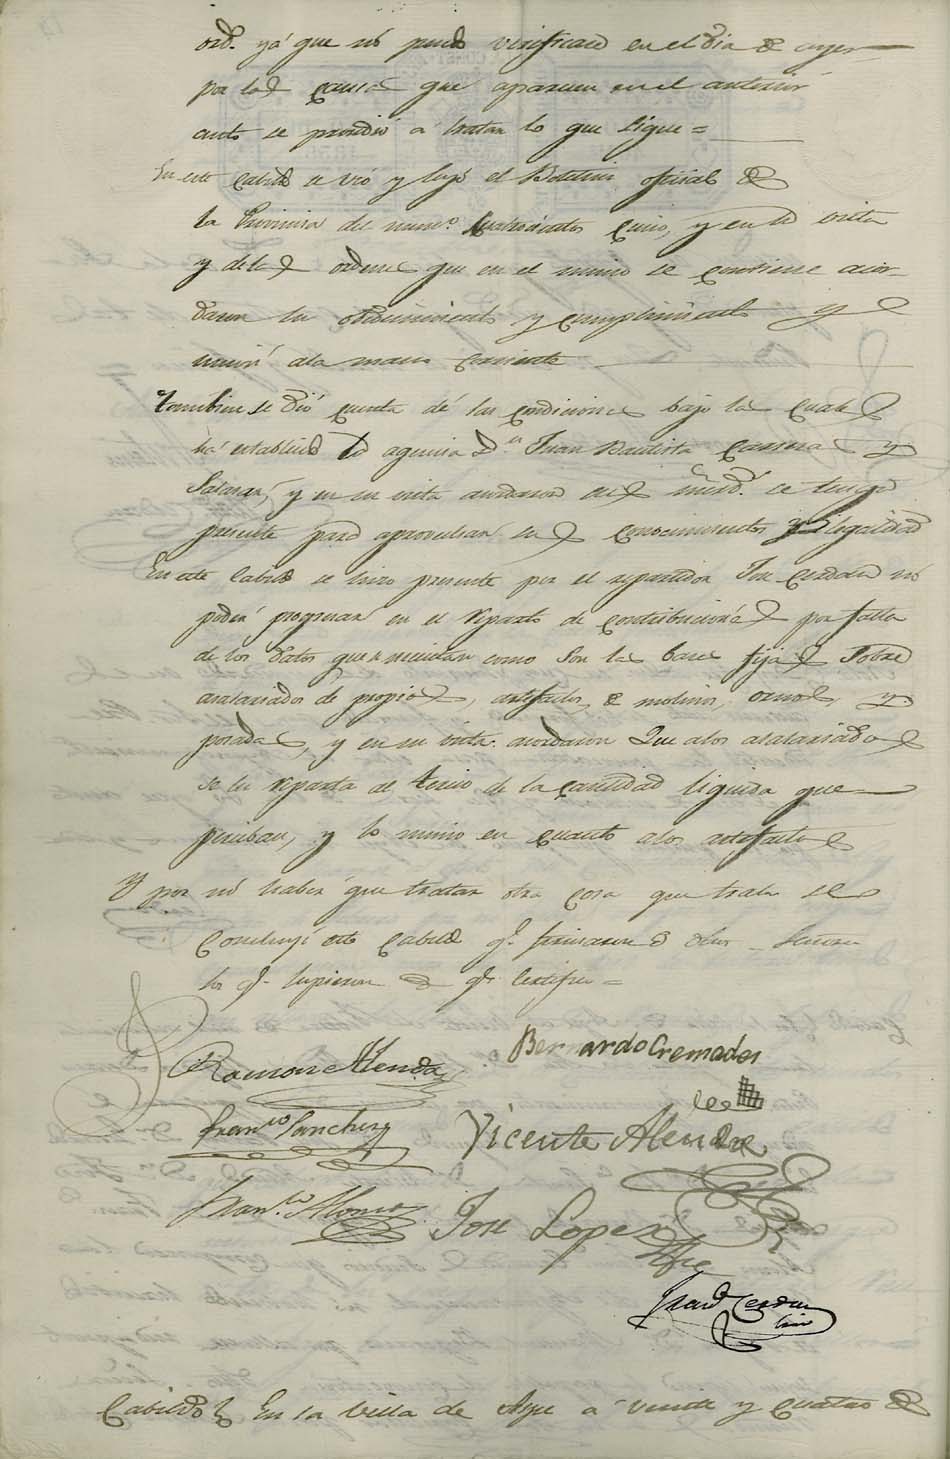 ord.º yá que nó pudo verificarse en el dia de ayer
por las causas que aparecen en el anterior
auto se prosedió á tratar lo que sigue =
En este Cabildo se vió y leyó el Boletin oficial de
la Provincia del num.º Cuatrocientos Cinco, y en su vista
y de las ordenes que en el mismo se contiene acor-
daron su obedecimiento y cumplimiento y
unión á la mano corriente
Tambien se dió cuenta de las condiciones bajo las cuales
há establecido la agencia D.n Juan Bautista Carrera y
y en su vista acordaron se tenga
presente para aprovechar sus conocimientos y legalidad
En este Cabildo se hizo presente por el repartidor Jose Cerdan nó
podia progresar en el reparto de contribuciones por falta
de los datos que se necesitan como son las bases fijas sobre
asalariados de propios, artefactos de molinos, ornos, y
posadas, y en su vista acordaron Que a los asalariados
se les reparta al tercio de la cantidad liquida que
perciban, y lo mismo en cuanto a los artefactos
Y por nó haber que tratar otra cosa que tratar se
Concluyó este Cabildo q.e firmaron de dhos Señores
los q.e supieron de q.e Certifico =
Ramon Alenda
Bernardo Cremades
Fran.co Sanchez
Vicente Alendra
Fran.co Alonso
Jose Lopez
Cerdan
Cabildo En la Villa de Aspe á veinte y cuatro de